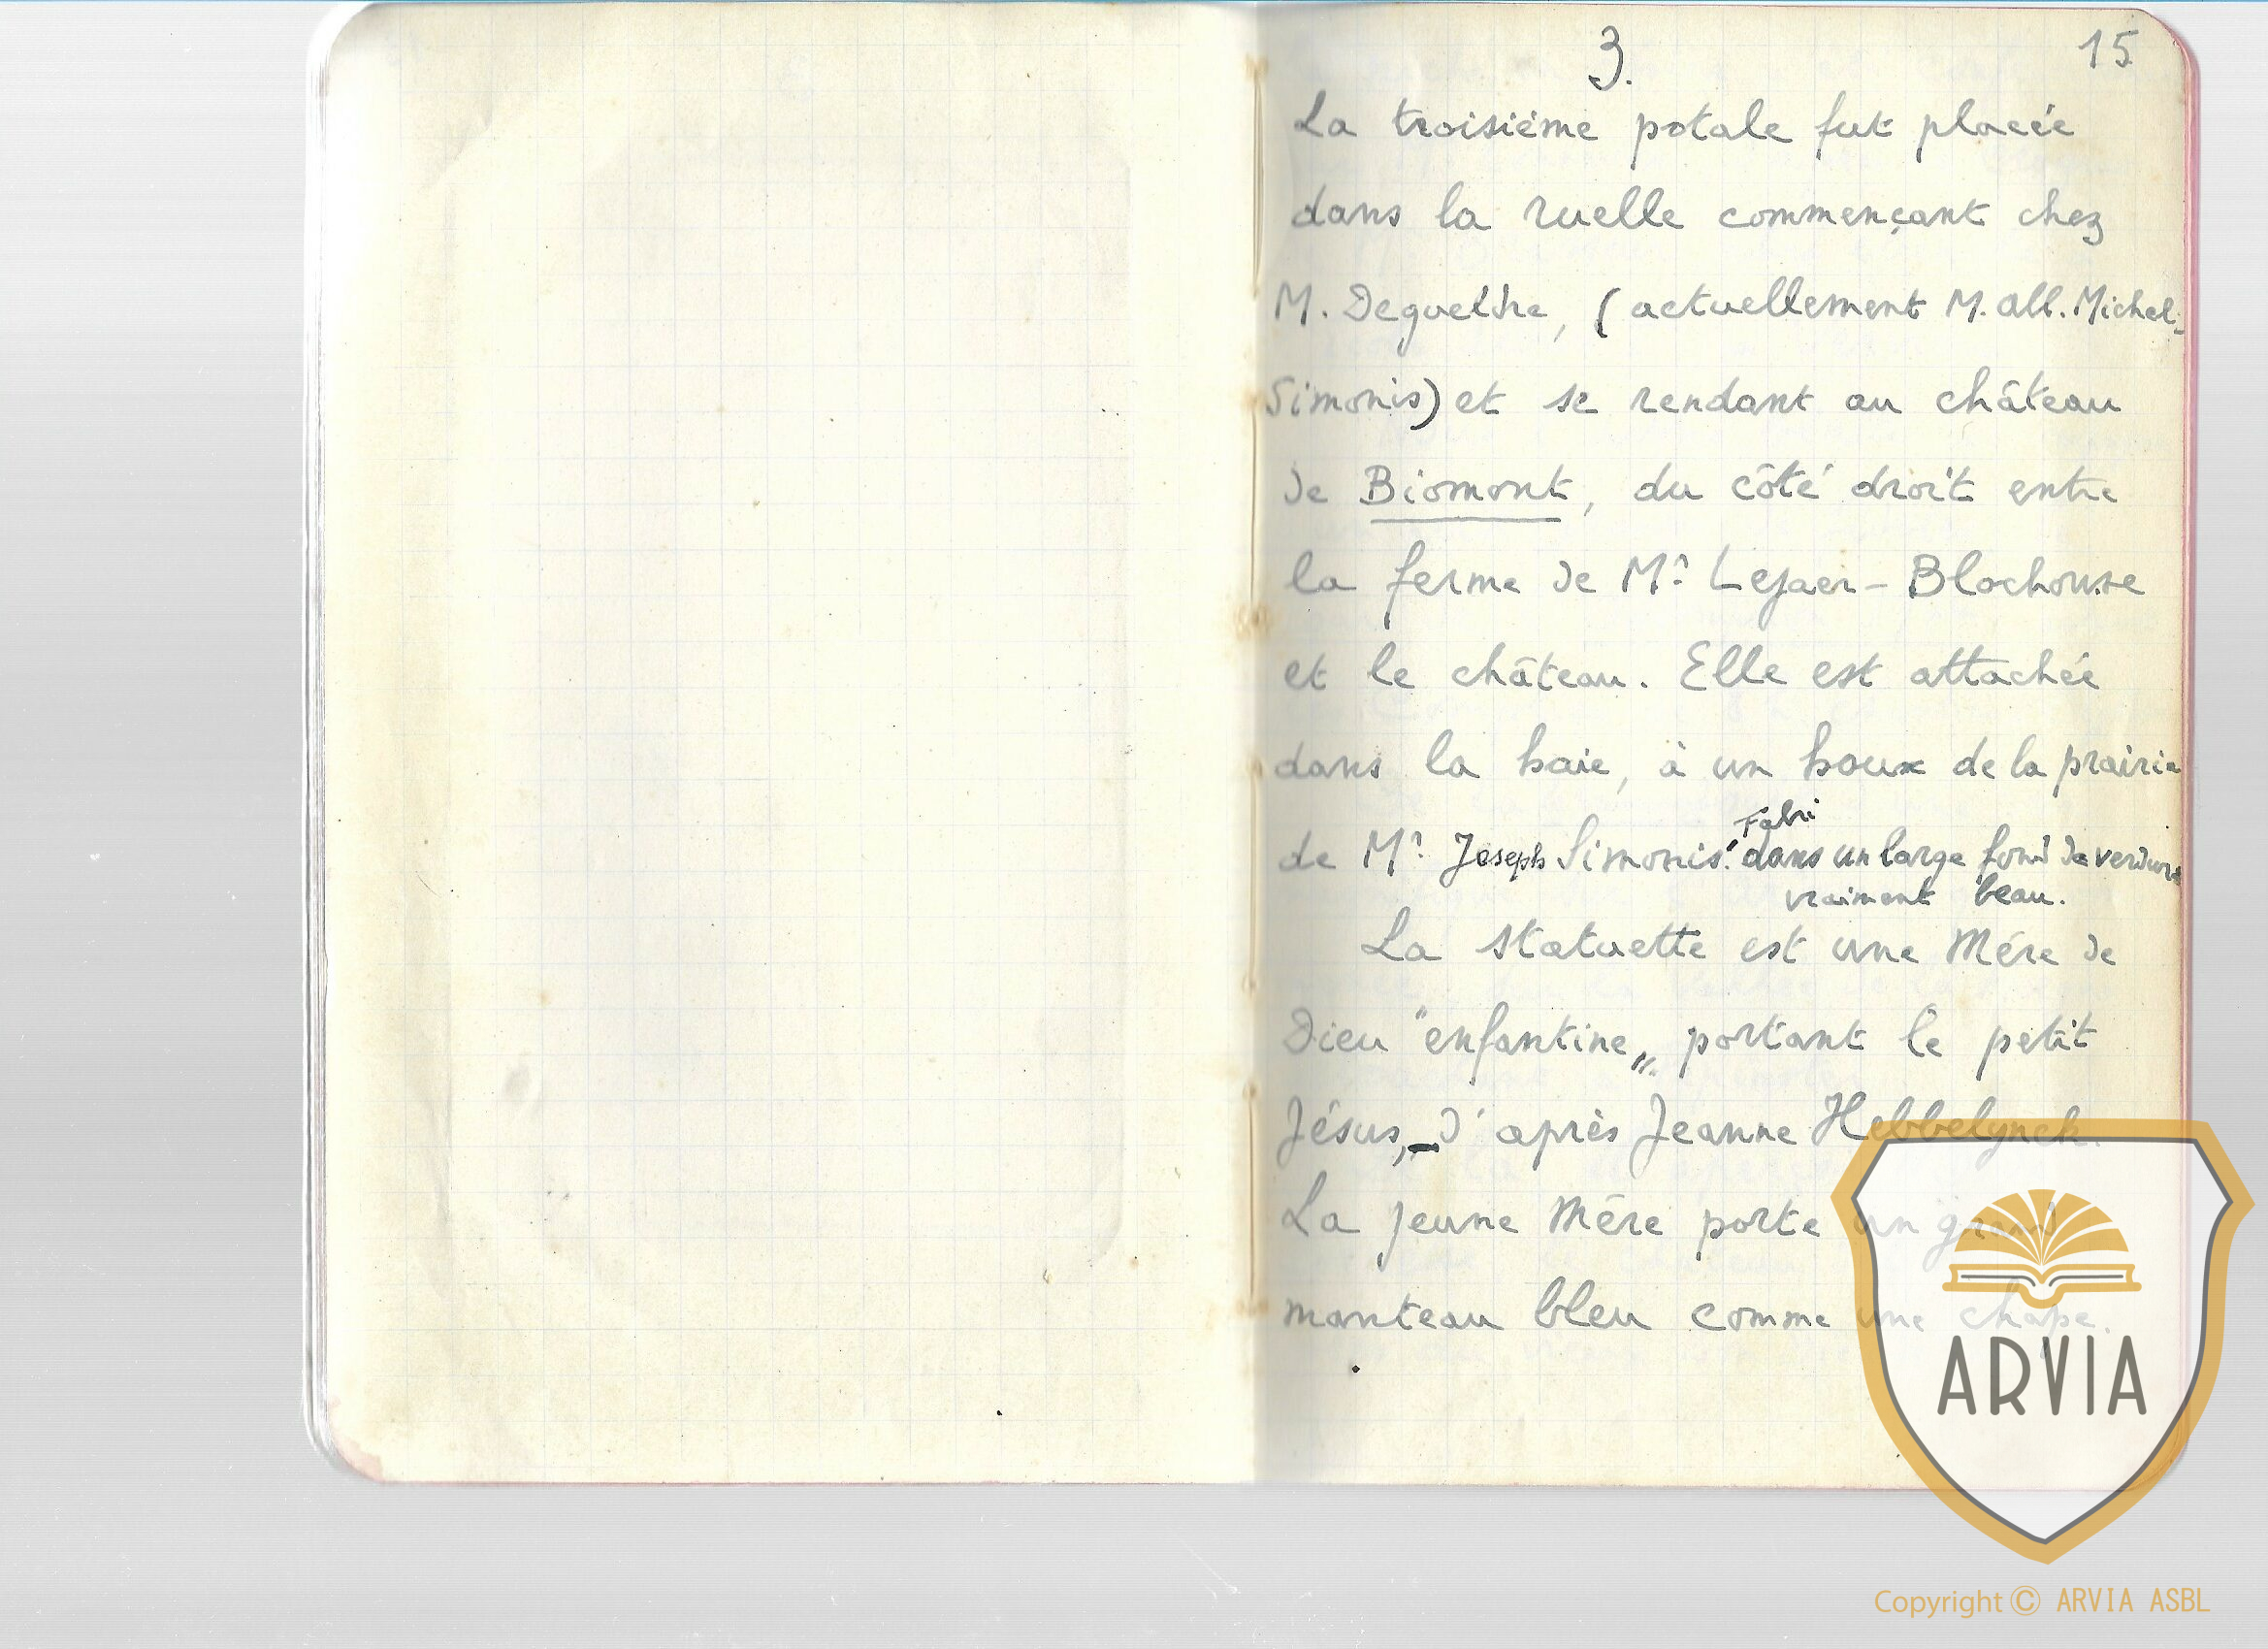 3.
15
La troisième potale fut placée
dans la ruelle commençant chez
M. Degueldre, (actuellement M. Alb. Michel-
Simonis) et se rendant au château
de Biomont, du côté droit entre
la ferme de Mr Lejaer-Blochouse
et le château. Elle est attachée
dans la haie, à un houx de la prairie
Fabri
de Mr. Joseph Simonis. dans un large fond de verdure
vraiment beau.
La statuette est une Mère de
Dieu "enfantine„ portant le petit
Jésus, - d'après Jeanne Hebbelynck.
La jeune Mère porte un grand
manteau bleu comme une chape.
ARVIA
Copyright © ARVIA ASBL